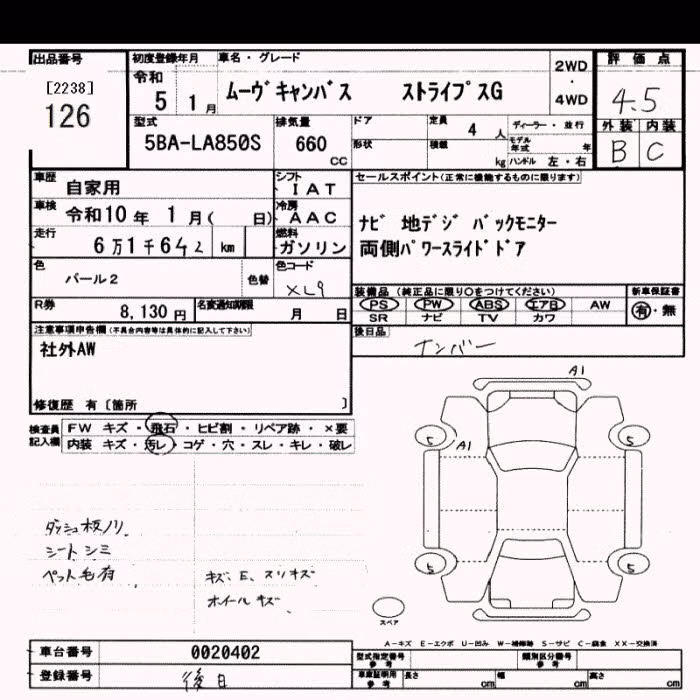 出品番号
[2238]
126
初度登録年月
令和
5 1月
車名・グレード
ムーヴキャンバス ストライプスG
2WD
・
4WD
評価点
4.5
外装 内装
B C
型式
5BA-LA850S
排気量
660
CC
ドア
形状
定員
4人
積載
kg
ディーラー・並行
モデル年式 年
ハンドル 左・右
車歴 自家用
シフト
IAT
車検 令和10年 1月( 日)
冷房
AAC
走行 6万1千642 km
燃料
ガソリン
色 パール2
色替
色コード
XL9
R券 8,130円
名変通知期限
月 日
セールスポイント(正常に機能するものに限ります)
ナビ 地デジ バックモニター
両側パワースライドドア
装備品 (純正品に限り〇をつけてください)
PS PW ABS エアB AW
SR ナビ TV カワ
新車保証書
有・無
後日品
ナンバー
注意事項申告欄(不具合内容等は具体的に記入して下さい)
社外AW
修復歴 有〔箇所 〕
検査員
記入欄
FW キズ・飛石・ヒビ割・リペア跡・×要
内装 キズ・汚レ・コゲ・穴・スレ・キレ・破レ
A1
A1
5 5
5 5
ダッシュ板ノリ
シートシミ
ペット毛有
キズ、E、スリキズ
ホイールキズ
スペア
A-キズ E-エクボ U-凹み W-補修跡 S-サビ C-腐食 XX-交換済
車台番号 0020402
登録番号 後日
型式指定番号
参考
類別区分番号
参考
車庫証明用
参考
長さ cm
幅 cm
高さ cm